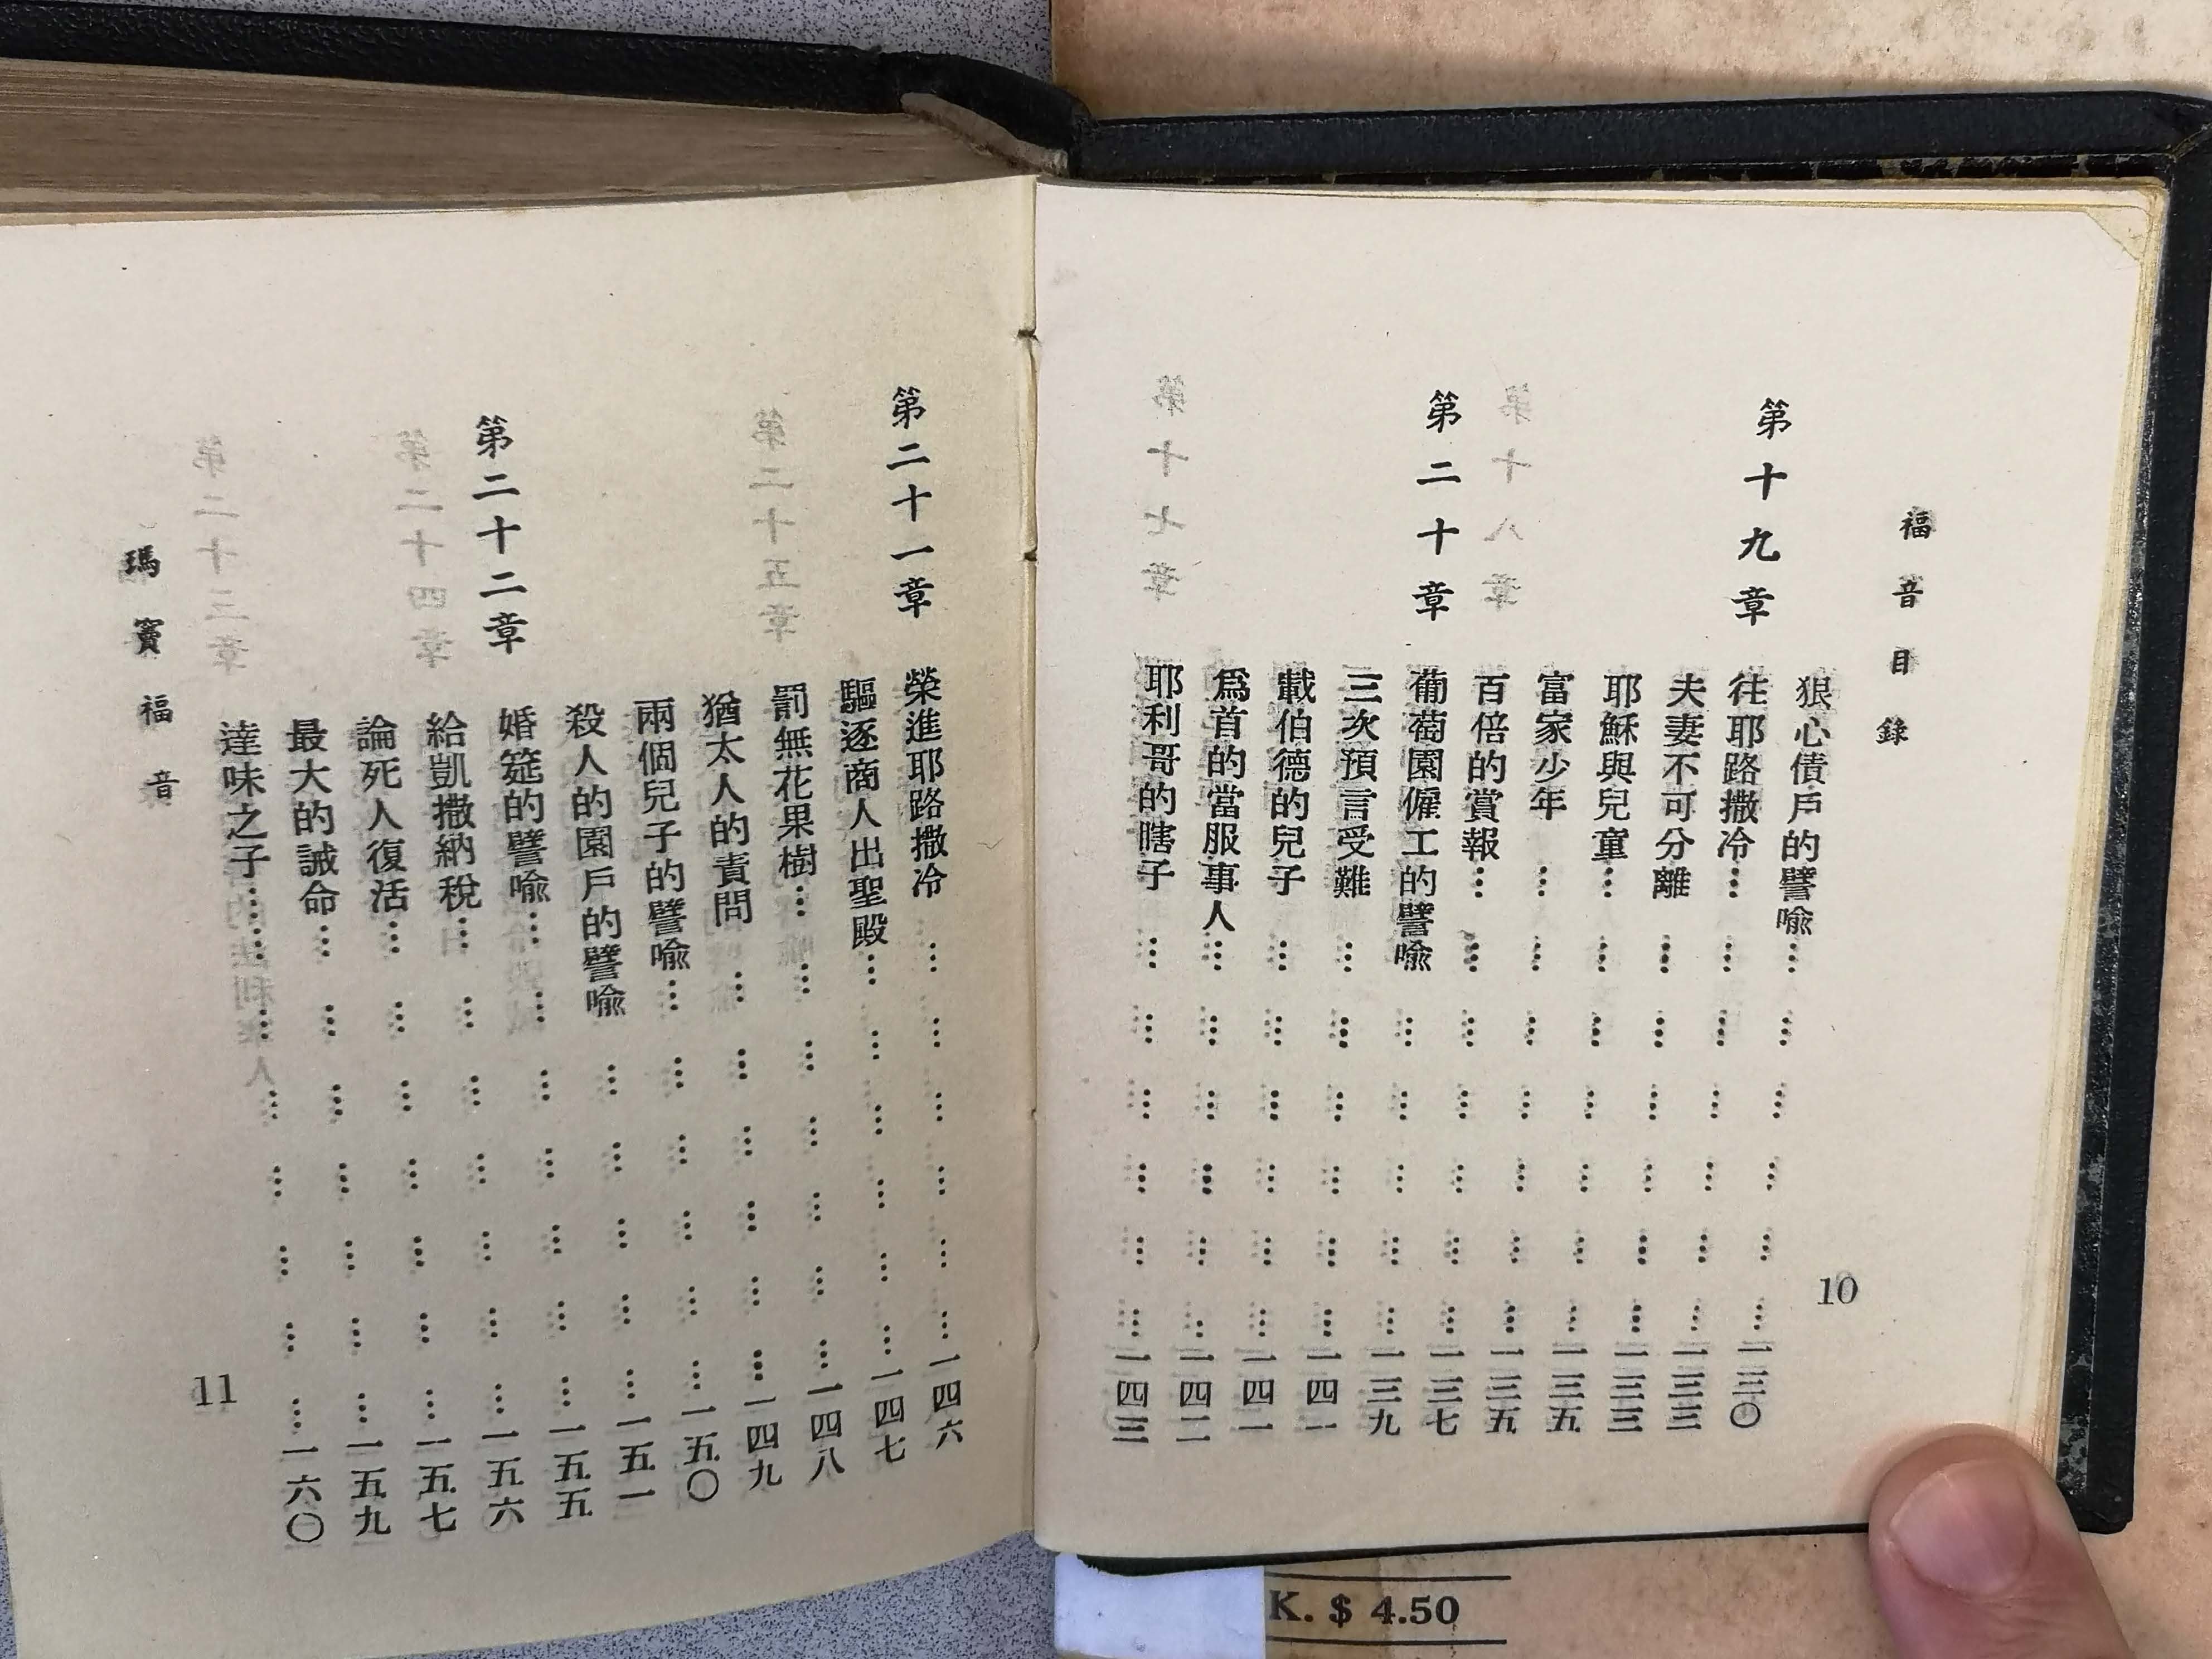 福音目錄
10
狠心債戶的譬喻⋯⋯⋯⋯⋯⋯一三〇
第十九章 往耶路撒冷⋯⋯⋯⋯⋯⋯⋯一三三
夫妻不可分離⋯⋯⋯⋯⋯⋯一三三
耶穌與兒童⋯⋯⋯⋯⋯⋯⋯一三五
富家少年⋯⋯⋯⋯⋯⋯⋯一三五
百倍的賞報⋯⋯⋯⋯⋯⋯⋯一三七
第二十章 葡萄園僱工的譬喻⋯⋯⋯⋯⋯一三九
三次預言受難⋯⋯⋯⋯⋯⋯一四一
載伯德的兒子⋯⋯⋯⋯⋯⋯一四一
爲首的當服事人⋯⋯⋯⋯⋯⋯一四二
耶利哥的瞎子⋯⋯⋯⋯⋯⋯一四三
第二十一章 榮進耶路撒冷⋯⋯⋯⋯⋯⋯一四六
驅逐商人出聖殿⋯⋯⋯⋯⋯⋯一四七
罰無花果樹⋯⋯⋯⋯⋯⋯⋯一四八
猶太人的責問⋯⋯⋯⋯⋯⋯一四九
兩個兒子的譬喻⋯⋯⋯⋯⋯⋯一五〇
殺人的園戶的譬喻⋯⋯⋯⋯⋯一五一
第二十二章 婚筵的譬喻⋯⋯⋯⋯⋯⋯⋯一五五
給凱撒納稅⋯⋯⋯⋯⋯⋯⋯一五六
論死人復活⋯⋯⋯⋯⋯⋯⋯一五七
最大的誡命⋯⋯⋯⋯⋯⋯⋯一五九
達味之子⋯⋯⋯⋯⋯⋯⋯一六〇
瑪竇福音
11
K. $ 4.50